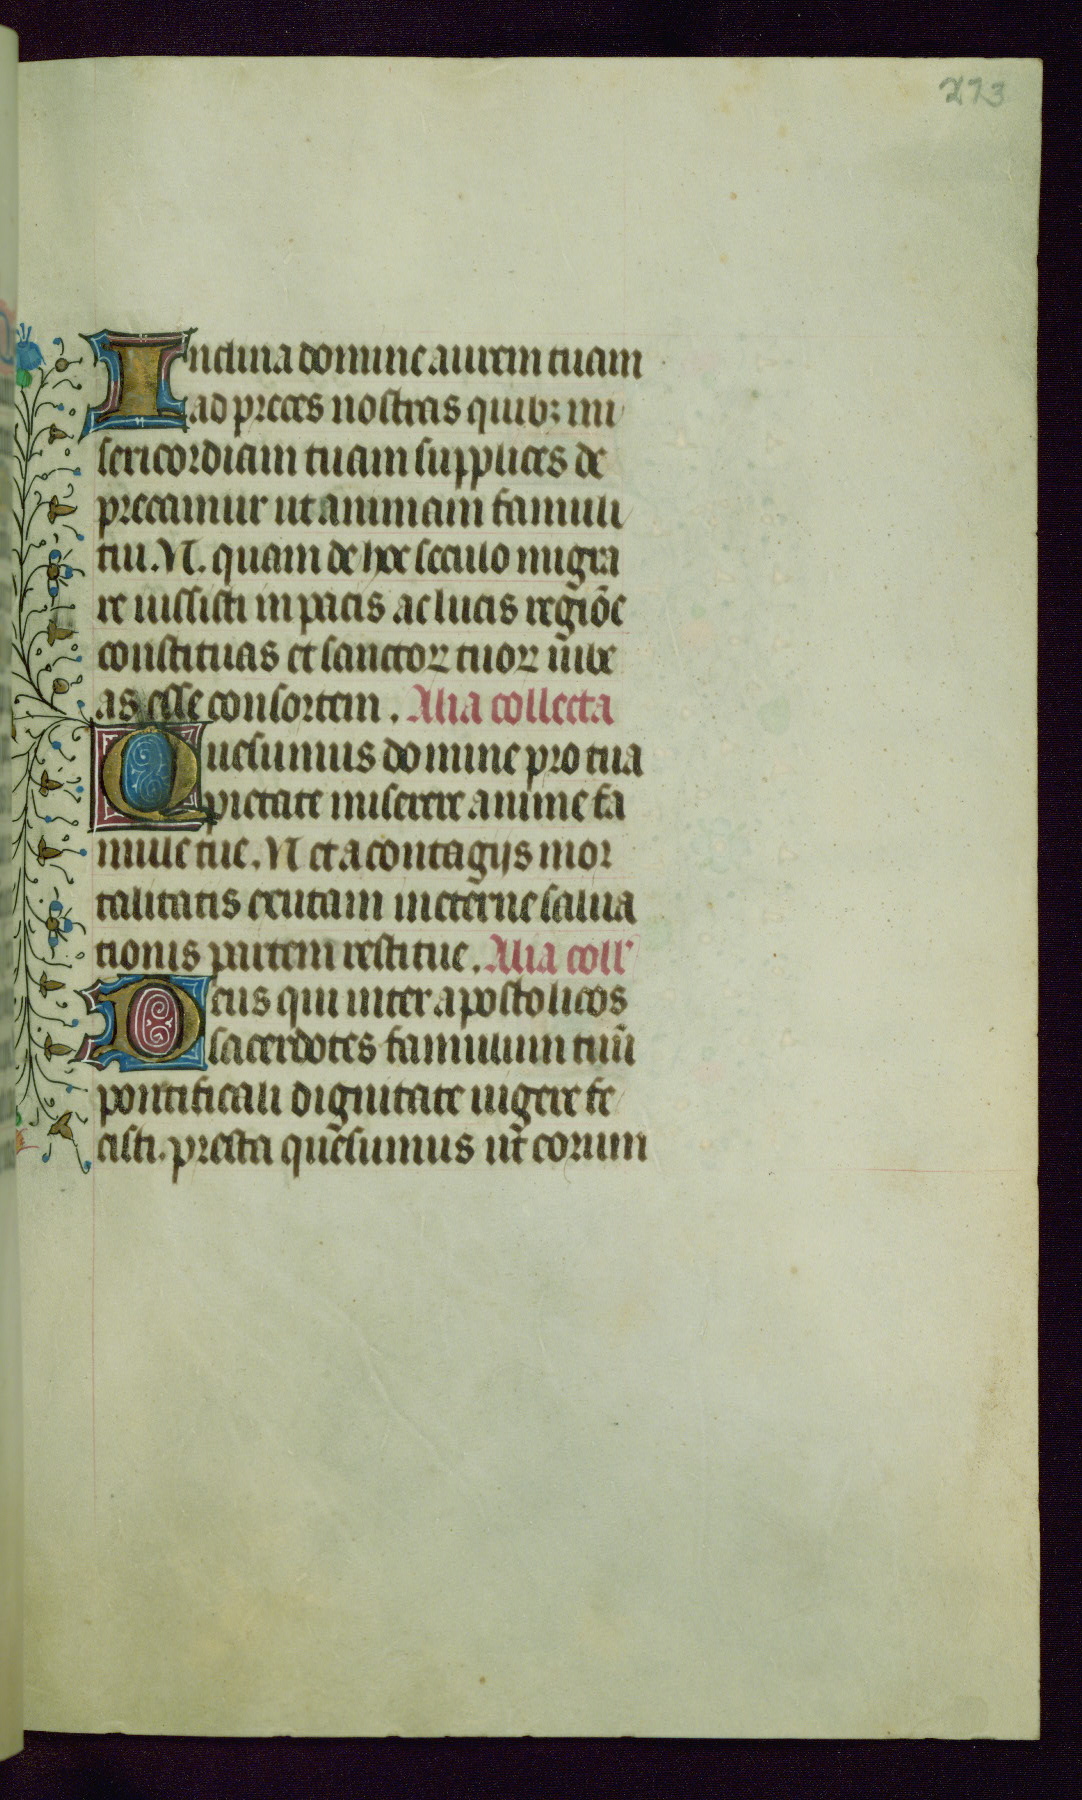 273
Inclina domine aurem tuam
ad preces nostras quibꝫ mi
sericordiam tuam supplices de
precamur ut animam famuli
tui. N. quam de hoc seculo migra
re iussisti in pacis ac lucis regiōe
constituas et sanctoꝝ tuoꝝ iūbe
as esse consortem. Alia collecta
Quesumus domine pro tua
pietate miserere anime fa
mule tue. N et a contagijs mor
talitatis exutam in eterne salua
tionis partem restitue. Alia coll'
Deus qui inter apostolicos
sacerdotes famulum tuū
pontificali dignitate uigere fe
cisti. presta quesumus ut eorum